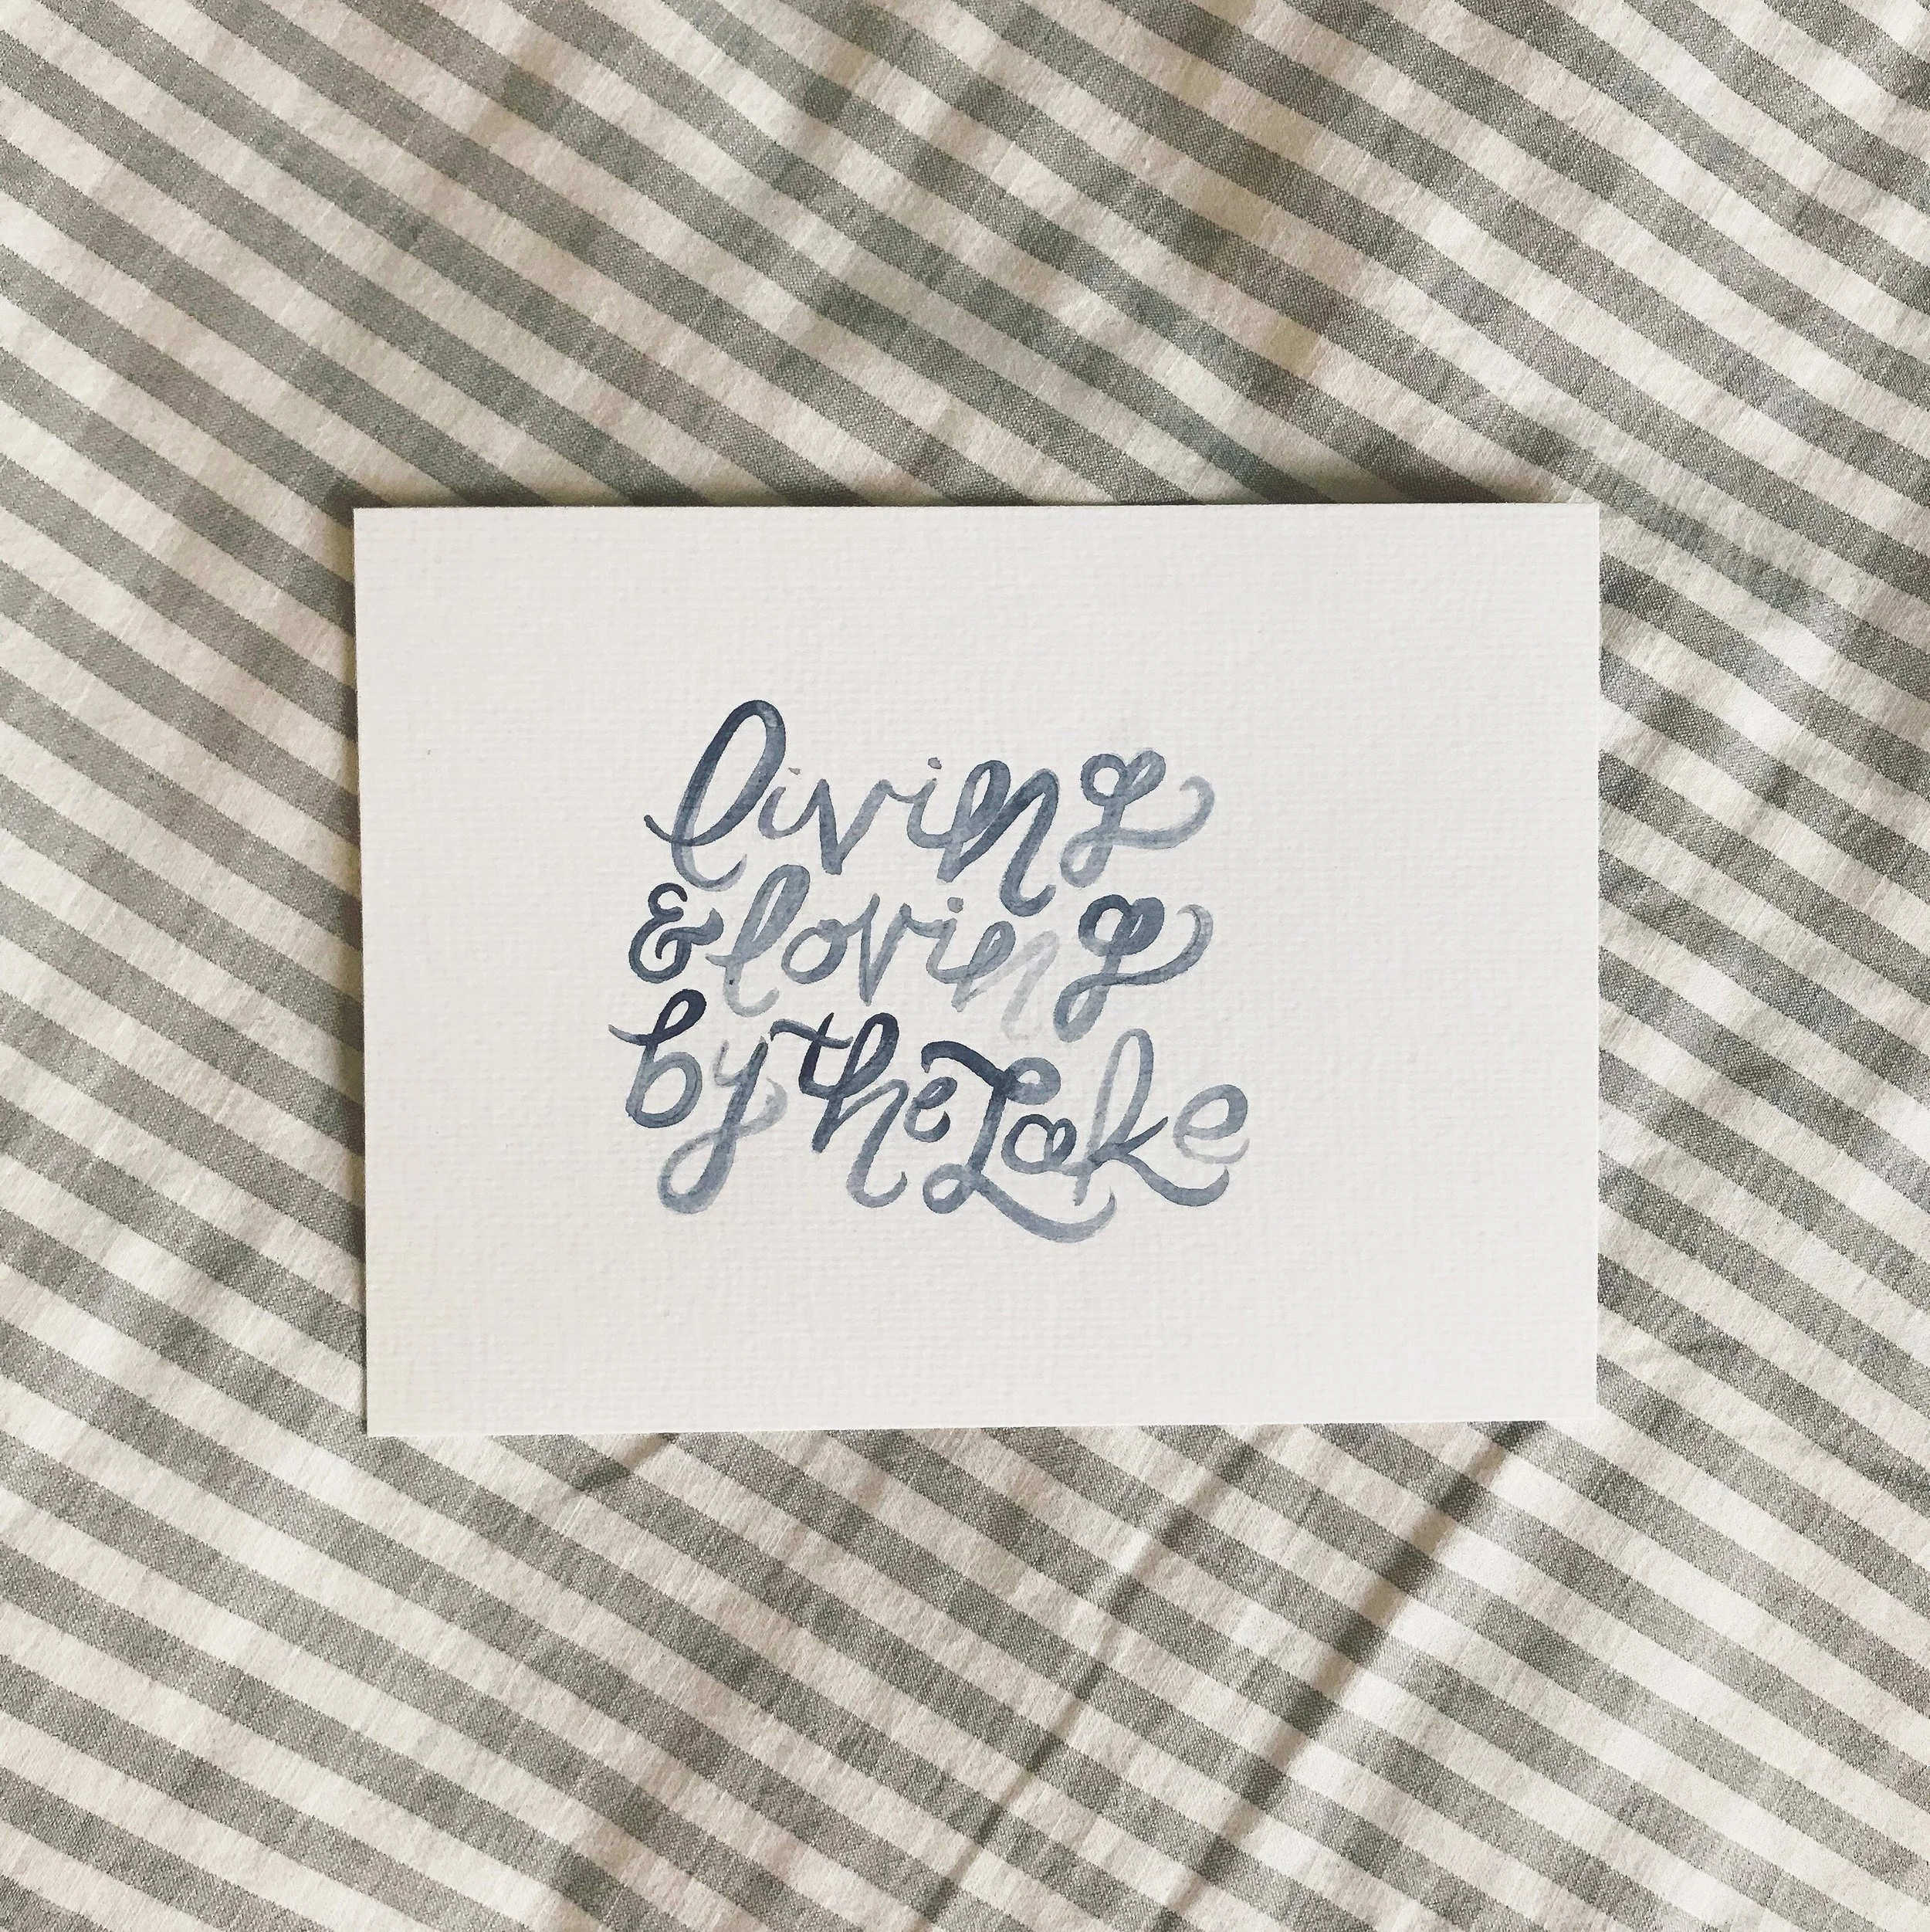 living
& loving
by the Lake